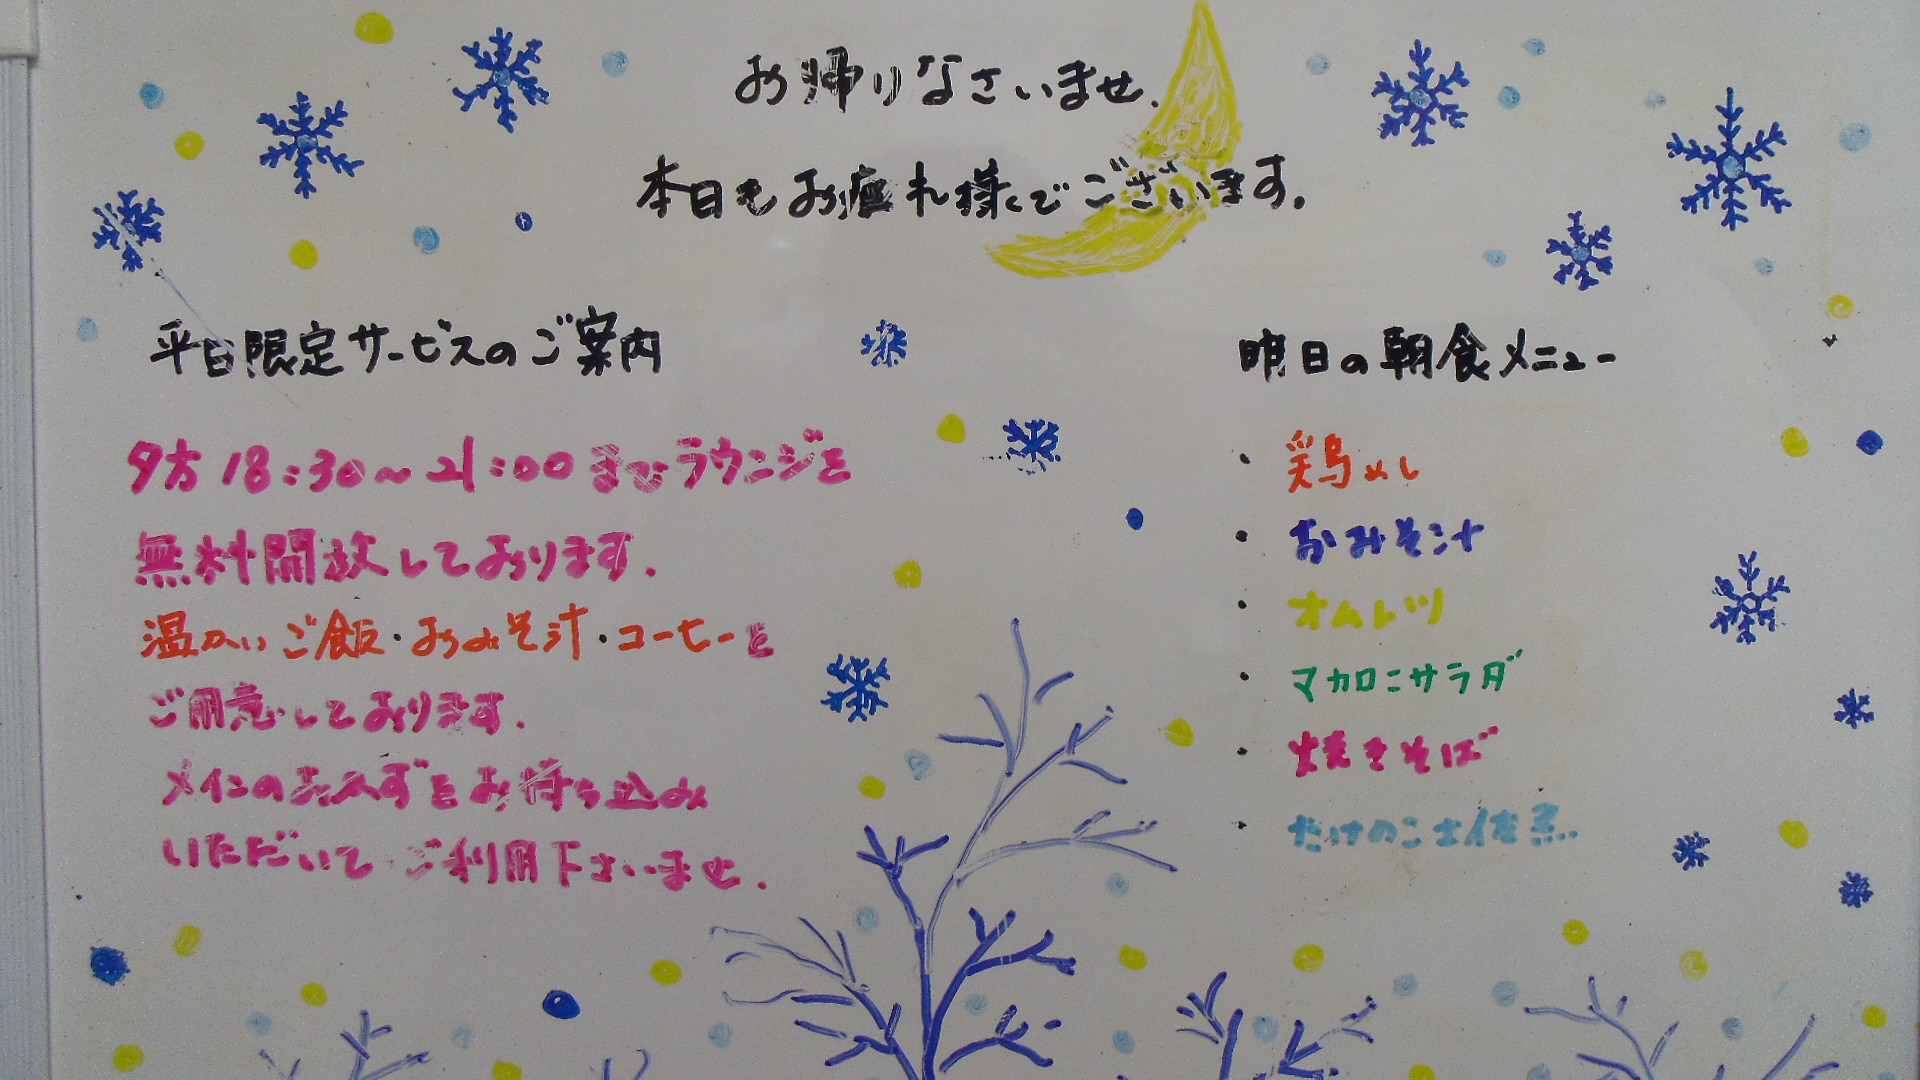 お帰りなさいませ.
本日もお疲れ様でございます.
平日限定サービスのご案内
夕方 18:30～21:00までラウンジを
無料開放しております.
温かいご飯・おみそ汁・コーヒーを
ご用意しております.
メインのおかずをお持ち込み
いただいて ご利用下さいませ.
明日の朝食メニュー
・鶏めし
・おみそ汁
・オムレツ
・マカロニサラダ
・焼きそば
・たけのこ土佐煮